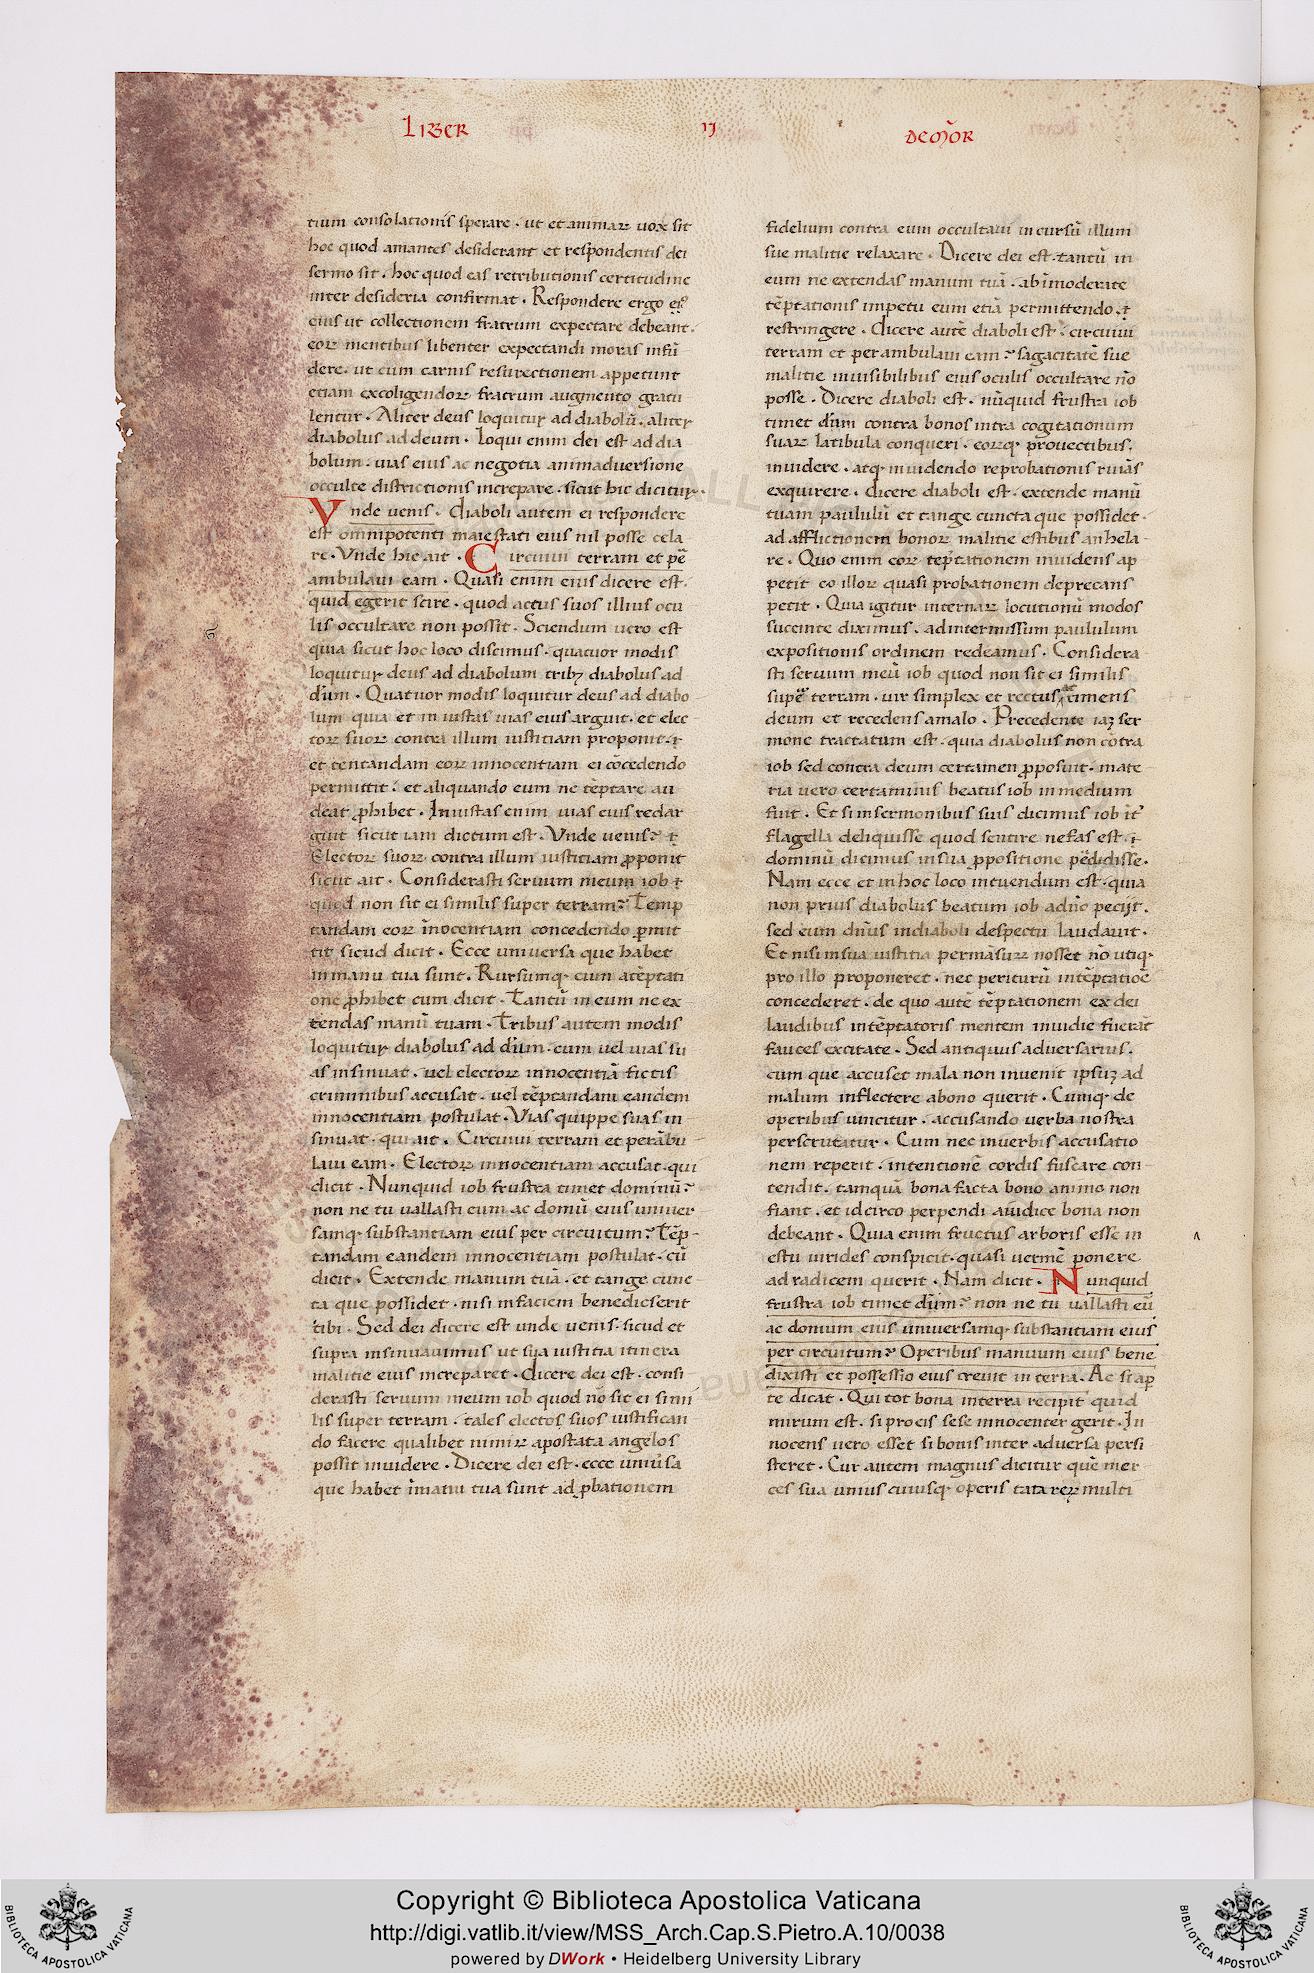 LIBER
II
DE MOR̄
tium consolationis sperare . ut et animaꝝ uox sit
hoc quod amantes desiderant et respondentis dei
sermo sit . hoc quod eas retributionis certitudine
inter desideria confirmat . Respondere ergo
eius ut collectionem fratrum expectare debeant .
eoꝝ mentibus libenter expectandi moras infū
dere . ut cum carnis resurectionem appetunt
etiam excoligendoꝝ fratrum augmento gratu
lentur . Aliter deus loquitur ad diabolū . aliter
diabolus ad deum . Loqui enim dei est ad dia
bolum . uias eius ac negotia animaduersione
occulte districtionis increpare . sicut hic dicitur .
Vnde uenis . diaboli autem ei respondere
est omnipotenti maiestati eius nil posse cela
re . Vnde hic ait . Circuiui terram et pe̅
ambulaui eam . Quasi enim eius dicere est .
quid egerit scire . quod actus suos illius ocu
lis occultare non possit . Sciendum uero est
quia sicut hoc loco discimus . quatuor modis
loquitur deus ad diabolum tribꝫ diabolus ad
dūm . Quatuor modis loquitur deus ad diabo
lum quia et iniustas uias eius arguit . et elec
toꝝ suoꝝ contra illum iustitiam proponit . ⁊
et tentandam eoꝝ innocentiam ei cōcedendo
permittit . et aliquando eum ne tēptare au
deat ꝓhibet . Iniustas enim uias eius redar
guit sicut iam dictum est . Vnde uenis ? ⁊
Electoꝝ suoꝝ contra illum iustitiam ꝓponit
sicut ait . Considerasti seruum meum iob ⁊
quod non sit ei similis super terram ? Temp
tandam eoꝝ īnocentiam concedendo ꝑmit
tit sicud dicit . Ecce uniuersa que habet
inmanu tua sunt . Rursumqꝫ cum atēptati
one ꝓhibet cum dicit . Tantū in eum ne ex
tendas manū tuam . Tribus autem modis
loquitur diabolus ad dūm . cum uel uias su
as insinuat . uel electoꝝ innocentiā fictis
criminibus accusat . uel tēptandam eandem
innocentiam postulat . Vias quippe suas in
sinuat . qui ait . Circuiui terram et perābu
laui eam . Electoꝝ innocentiam accusat . qui
dicit . Nunquid iob frustra timet dominū ?
non ne tu uallasti eum ac domū eius uniuer
samqꝫ substantiam eius per circuitum ? Tēp
tandam eandem innocentiam postulat . cū
dicit . Extende manum tuā . et tange cunc
ta que possidet . nisi infaciem benedicserit
tibi . Sed dei dicere est unde uenis . sicud et
supra insinuauimus ut sua iustitia itinera
malitie eius increparet . dicere dei est . consi
derasti seruum meum iob quod nō sit ei simi
lis super terram . tales electos suos iustifican
do facere qualibet nimiꝝ apostata angelos
possit inuidere . Dicere dei est . ecce uniūsa
que habet īmanu tua sunt ad ꝓbationem
fidelium contra eum occultaui incursū illum
sue malitie relaxare . Dicere dei est . tantū in
eum ne extendas manum tuā . ab īmoderate
tēptationis impetu eum etiā permittendo . ⁊
restringere . dicere autē diaboli est . circuiui
terram et perambulaui eam ? sagacitatē sue
malitie inuisibilibus eius oculis occultare nō
posse . Dicere diaboli est . nūquid frustra iob
timet dūm contra bonos intra cogitationum
suaꝝ latibula conqueri . eoꝝqꝫ prouectibus .
inuidere . atqꝫ inuidendo reprobationis rimas
exquirere . dicere diaboli est . extende manū
tuam paululū et tange cuncta que possidet .
ad afflictionem bonoꝝ malitie estibus anhela
re . Quo enim eoꝝ teptationem inuidens ap
petit eo illoꝝ quasi probationem deprecans
petit . Quia igitur internaꝝ locutionū modos
succinte diximus . ad intermissum paululum
expositionis ordinem redeamus . Considera
sti seruum meū iob quod non sit ei similis
supe̅ terram . uir simplex et rectus ac timens
deum et recedens amalo . Precedente iaꝫ ser
mone tractatum est . quia diabolus non cōtra
iob sed contra deum certamen ꝓposuit . mate
ria uero certaminis beatus iob in medium
fuit . Et si insermonibus suis dicimus iob iт̄
flagella deliquisse quod sentire nefas est . ⁊
dominū dicimus insua ꝓpositione pe̅didisse .
Nam ecce et in hoc loco intuendum est . quia
non prius diabolus beatum iob adn̄o pecijt .
sed eum dn̄us indiaboli despectu laudauit .
Et nisi insua iustitia permāsurꝝ nosset nō utiqꝫ
pro illo proponeret . nec periturū intēptatioē
concederet . de quo autē tēptationem ex dei
laudibus intēptatoris mentem inuidie fuerāt
fauces excitate . Sed antiquus aduersarius .
cum que accuset mala non inuenit ipsuꝫ ad
malum inflectere abono querit . Cumqꝫ de
operibus uincitur . accusando uerba nostra
perscrutatur . Cum nec inuerbis accusatio
nem reperit . intentionē cordis fuscare con
tendit . tamquā bona facta bono animo non
fiant . et idcirco perpendi auidice bona non
debeant . Quia enim fructus arboris esse in
estu uirides conspicit . quasi uermē ponere
ad radicem querit . Nam dicit . Nunquid
frustra iob timet dūm ? non ne tu uallasti eū
ac domum eius uniuersamqꝫ substantiam eius
per circuitum ? Operibus manuum eius bene
dixisti et possessio eius creuit in terra . Ac si aꝑ
te dicat . Qui tot bona interra recipit quid
mirum est . si pro eis sese innocenter gerit . In
nocens uero esset si bonis inter aduersa persi
steret . Cur autem magnus dicitur quē mer
ces sua unius cuiusqꝫ operis tata reꝝ multi
Copyright © Biblioteca Apostolica Vaticana
http://digi.vatlib.it/view/MSS_Arch.Cap.S.Pietro.A.10/0038
powered by DWork • Heidelberg University Library
BIBLIOTECA APOSTOLICA VATICANA
BIBLIOTECA APOSTOLICA VATICANA